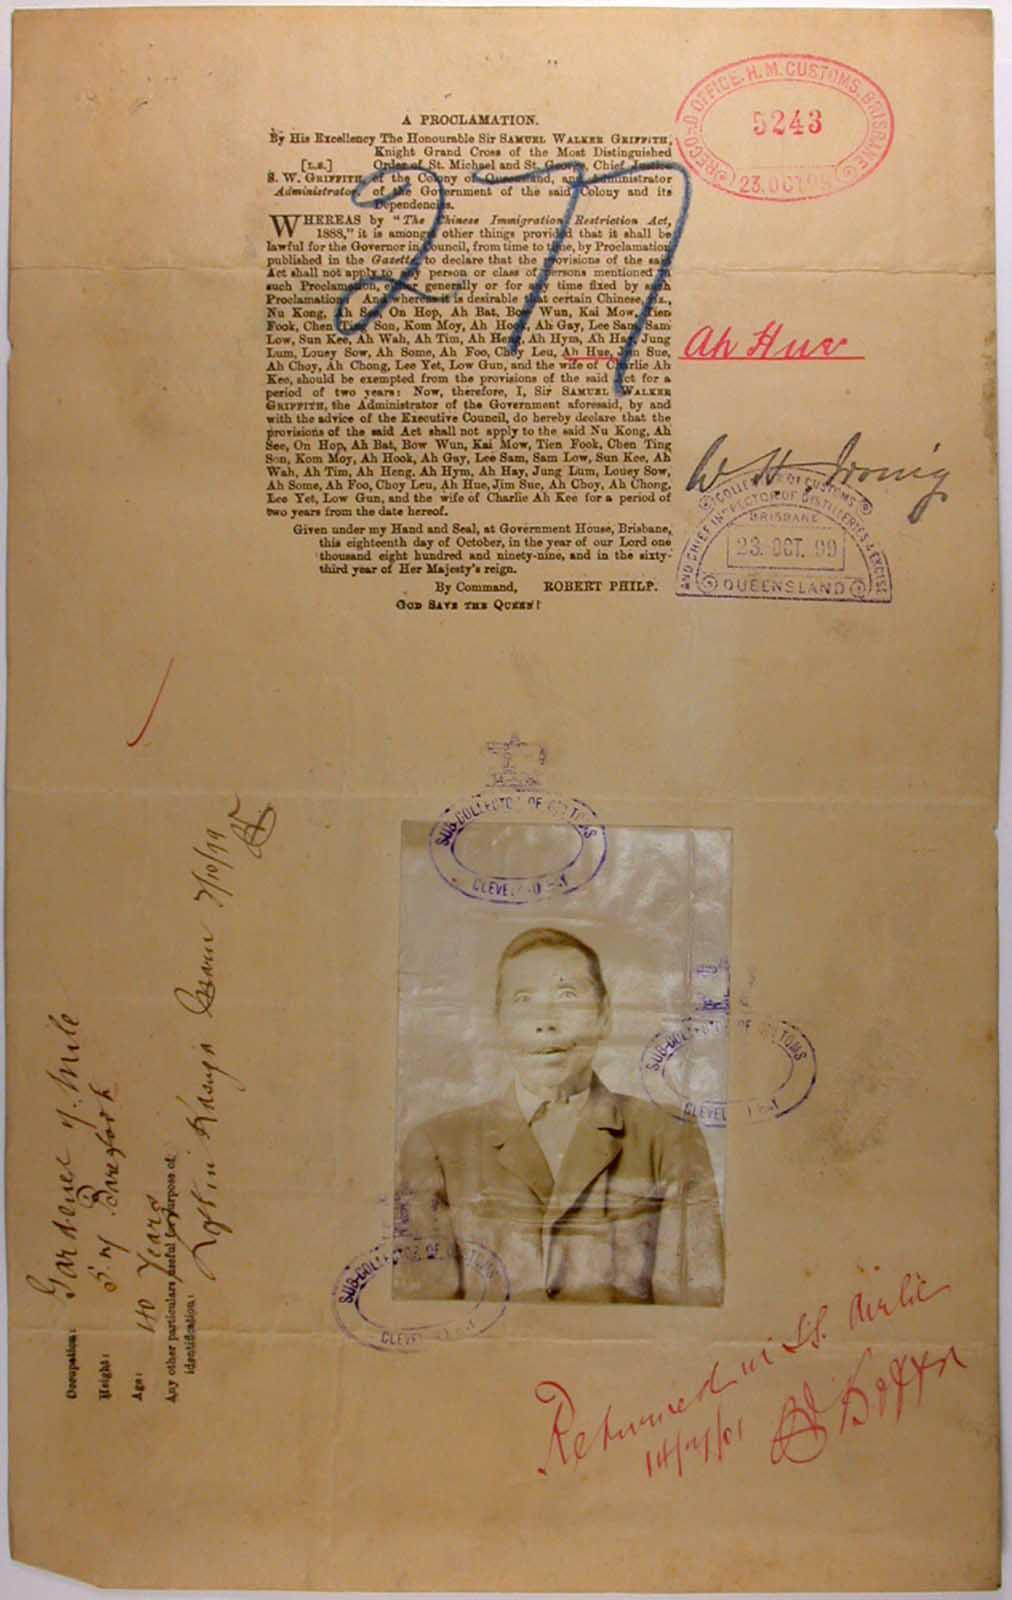 A PROCLAMATION.
By His Excellency The Honourable Sir SAMUEL WALKER GRIFFITH,
Knight Grand Cross of the Most Distinguished
[L.S.] Order of St. Michael and St. George, Chief Justice
S. W. GRIFFITH, of the Colony of Queensland, and Administrator
Administrator. of the Government of the said Colony and its
Dependencies.
WHEREAS by "The Chinese Immigration Restriction Act,
1888," it is amongst other things provided that it shall be
lawful for the Governor in Council, from time to time, by Proclamation
published in the Gazette, to declare that the provisions of the said
Act shall not apply to any person or class of persons mentioned in
such Proclamation, either generally or for any time fixed by such
Proclamation: And whereas it is desirable that certain Chinese, viz.,
Nu Kong, Ah See, On Hop, Ah Bat, Bow Wun, Kai Mow, Tien
Fook, Chen Ting Son, Kom Moy, Ah Hook, Ah Gay, Lee Sam, Sam
Low, Sun Kee, Ah Wah, Ah Tim, Ah Heng, Ah Hym, Ah Hay, Jung
Lum, Louey Sow, Ah Some, Ah Foo, Choy Leu, Ah Hue, Jim Sue,
Ah Choy, Ah Chong, Lee Yet, Low Gun, and the wife of Charlie Ah
Kee, should be exempted from the provisions of the said Act for a
period of two years: Now, therefore, I, Sir SAMUEL WALKER
GRIFFITH, the Administrator of the Government aforesaid, by and
with the advice of the Executive Council, do hereby declare that the
provisions of the said Act shall not apply to the said Nu Kong, Ah
See, On Hop, Ah Bat, Bow Wun, Kai Mow, Tien Fook, Chen Ting
Son, Kom Moy, Ah Hook, Ah Gay, Lee Sam, Sam Low, Sun Kee, Ah
Wah, Ah Tim, Ah Heng, Ah Hym, Ah Hay, Jung Lum, Louey Sow,
Ah Some, Ah Foo, Choy Leu, Ah Hue, Jim Sue, Ah Choy, Ah Chong,
Lee Yet, Low Gun, and the wife of Charlie Ah Kee for a period of
two years from the date hereof.
Given under my Hand and Seal, at Government House, Brisbane,
this eighteenth day of October, in the year of our Lord one
thousand eight hundred and ninety-nine, and in the sixty-
third year of Her Majesty's reign.
By Command, ROBERT PHILP.
GOD SAVE THE QUEEN!
277
RECORD OFFICE. H. M. CUSTOMS. BRISBANE
5243
23. OCT 99
Ah Hue
W H Irving
COLLECTOR OF CUSTOMS
AND CHIEF INSPECTOR OF DISTILLERIES & EXCISE
BRISBANE
23. OCT. 99
QUEENSLAND
SUB-COLLECTOR OF CUSTOMS
CLEVELAND BAY
SUB-COLLECTOR OF CUSTOMS
CLEVELAND BAY
SUB-COLLECTOR OF CUSTOMS
CLEVELAND BAY
Occupation: Gardener
Height:
Age: 40 Years
Any other particulars useful for purpose of
identification:
Returned in S.S. Airlie